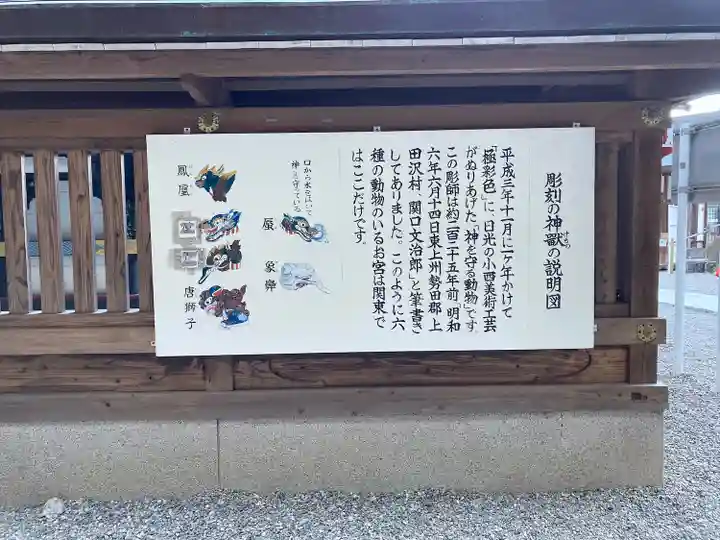 彫刻の神獣の説明図
すぢう
平成三年十一月に一ヶ年かけて
「極彩色」に、日光の小西美術工芸
がぬりあげた「神を守る動物」です
この彫師は約二百二十五年前、明和
六年六月十四日東上州勢田郡、上
田沢村、関口文治郎」と筆書き
してありました。このように六
種の動物のいるお宮は関東で
はここだけです。
口から水をはいて
神を守っている
蜃
象鼻
鳳凰
唐獅子